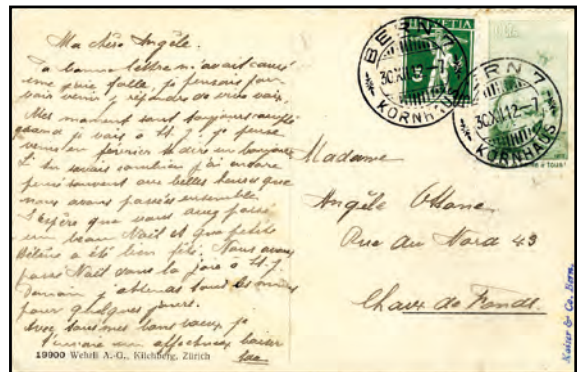 Ma chère Angèle.
Ta bonne lettre m'avait causé
une joie folle, je pensais
venir y répondre de vive voix.
Mes moment sont toujours
quand je vais à St. J. je pense
venir en février te dire un bonjour
Si tu savais combien j'ai encore
pensé souvent aux belles heures que
nous avons passées ensemble
J'espère que vous avez passé
un beau Noël et que petite
Hélène a été bien fêté. Nous avons
passé Noël dans la joie à St. J
Demain j'attends tous les miens
pour quelques jours.
Avec tous mes bons vœux, je
t'envoie un affectueux baiser
19900 Wehrli A.-G., Kilchberg, Zürich
HELVETIA
BERN 7
30.XII.12-7
KORNHAUS
BERN 7
30.XII.12-7
KORNHAUS
à tous!
Madame
Angèle Ottone
Rue du Nord 43
Chaux de Fonds.
Kaiser & Co. Bern.